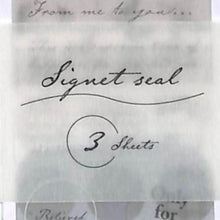 From me to you...
Signet seal
3 Sheets
Only
for